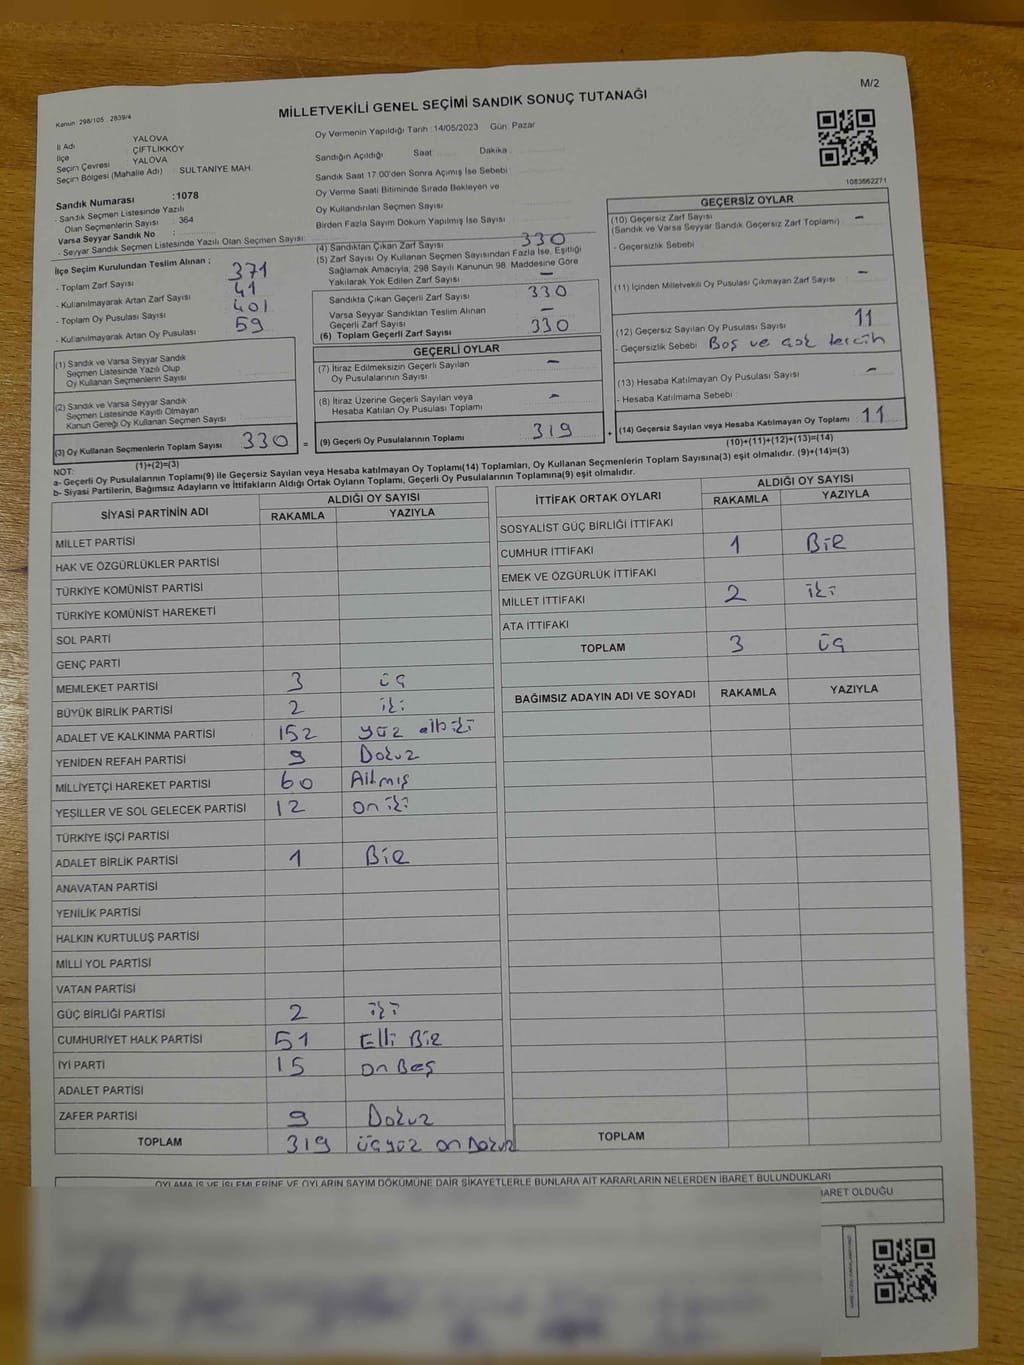 M/2
MİLLETVEKİLİ GENEL SEÇİMİ SANDIK SONUÇ TUTANAĞI
Kanun: 298/105 : 2839/4
İl Adı YALOVA
İlçe ÇİFTLİKKÖY
Seçim Çevresi : YALOVA
Seçim Bölgesi (Mahalle Adı) : SULTANİYE MAH.
Sandık Numarası :1078
- Sandık Seçmen Listesinde Yazılı
Olan Seçmenlerin Sayısı : 364
Varsa Seyyar Sandık No :
- Seyyar Sandık Seçmen Listesinde Yazılı Olan Seçmen Sayısı:
Oy Vermenin Yapıldığı Tarih :14/05/2023 Gün: Pazar
Sandığın Açıldığı Saat Dakika
Sandık Saat 17:00'den Sonra Açımış İse Sebebi
Oy Verme Saati Bitiminde Sırada Bekleyen ve
Oy Kullandırılan Seçmen Sayısı
Birden Fazla Sayım Döküm Yapılmış İse Sayısı
1083662271
İlçe Seçim Kurulundan Teslim Alınan :
- Toplam Zarf Sayısı 371
- Kullanılmayarak Artan Zarf Sayısı 41
- Toplam Oy Pusulası Sayısı 401
- Kullanılmayarak Artan Oy Pusulası 59
(1) Sandık ve Varsa Seyyar Sandık
Seçmen Listesinde Yazılı Olup
Oy Kullanan Seçmenlerin Sayısı
(2) Sandık ve Varsa Seyyar Sandık
Seçmen Listesinde Kayıtlı Olmayan
Kanun Gereği Oy Kullanan Seçmen Sayısı
(3) Oy Kullanan Seçmenlerin Toplam Sayısı 330 =
(1)+(2)=(3)
(4) Sandıktan Çıkan Zarf Sayısı 330
(5) Zarf Sayısı Oy Kullanan Seçmen Sayısından Fazla İse, Eşitliği
Sağlamak Amacıyla, 298 Sayılı Kanunun 98. Maddesine Göre
Yakılarak Yok Edilen Zarf Sayısı —
Sandıkta Çıkan Geçerli Zarf Sayısı 330
Varsa Seyyar Sandıktan Teslim Alınan
Geçerli Zarf Sayısı —
(6) Toplam Geçerli Zarf Sayısı 330
GEÇERLİ OYLAR
(7) İtiraz Edilmeksizin Geçerli Sayılan
Oy Pusulalarının Sayısı —
(8) İtiraz Üzerine Geçerli Sayılan veya
Hesaba Katılan Oy Pusulası Toplamı -
(9) Geçerli Oy Pusulalarının Toplamı 319 +
GEÇERSİZ OYLAR
(10) Geçersiz Zarf Sayısı —
(Sandık ve Varsa Seyyar Sandık Geçersiz Zarf Toplamı)
- Geçersizlik Sebebi
(11) İçinden Milletvekili Oy Pusulası Çıkmayan Zarf Sayısı —
(12) Geçersiz Sayılan Oy Pusulası Sayısı 11
- Geçersizlik Sebebi Boş ve çok tercih
(13) Hesaba Katılmayan Oy Pusulası Sayısı -
- Hesaba Katılmama Sebebi
(14) Geçersiz Sayılan veya Hesaba Katılmayan Oy Toplamı 11
(10)+(11)+(12)+(13)=(14)
NOT:
a- Geçerli Oy Pusulalarının Toplamı(9) ile Geçersiz Sayılan veya Hesaba katılmayan Oy Toplamı(14) Toplamları, Oy Kullanan Seçmenlerin Toplam Sayısına(3) eşit olmalıdır. (9)+(14)=(3)
b- Siyasi Partilerin, Bağımsız Adayların ve İttifakların Aldığı Ortak Oyların Toplamı, Geçerli Oy Pusulalarının Toplamına(9) eşit olmalıdır.
SİYASİ PARTİNİN ADI ALDIĞI OY SAYISI
RAKAMLA YAZIYLA
MİLLET PARTİSİ
HAK VE ÖZGÜRLÜKLER PARTİSİ
TÜRKİYE KOMÜNİST PARTİSİ
TÜRKİYE KOMÜNİST HAREKETİ
SOL PARTİ
GENÇ PARTİ
MEMLEKET PARTİSİ 3 üç
BÜYÜK BİRLİK PARTİSİ 2 iki
ADALET VE KALKINMA PARTİSİ 152
YENİDEN REFAH PARTİSİ 9 Dokuz
MİLLİYETÇİ HAREKET PARTİSİ 60 Altmış
YEŞİLLER VE SOL GELECEK PARTİSİ 12 on iki
TÜRKİYE İŞÇİ PARTİSİ
ADALET BİRLİK PARTİSİ 1 Bir
ANAVATAN PARTİSİ
YENİLİK PARTİSİ
HALKIN KURTULUŞ PARTİSİ
MİLLİ YOL PARTİSİ
VATAN PARTİSİ
GÜÇ BİRLİĞİ PARTİSİ 2 iki
CUMHURİYET HALK PARTİSİ 51 Elli Bir
İYİ PARTİ 15 on Beş
ADALET PARTİSİ
ZAFER PARTİSİ 9 Dokuz
TOPLAM 319 üçyüz on Dokuz
İTTİFAK ORTAK OYLARI ALDIĞI OY SAYISI
RAKAMLA YAZIYLA
SOSYALİST GÜÇ BİRLİĞİ İTTİFAKI
CUMHUR İTTİFAKI 1 Bir
EMEK VE ÖZGÜRLÜK İTTİFAKI
MİLLET İTTİFAKI 2 iki
ATA İTTİFAKI
TOPLAM 3 üç
BAĞIMSIZ ADAYIN ADI VE SOYADI RAKAMLA YAZIYLA
TOPLAM
OYLAMA İŞ VE İŞLEMLERİNE VE OYLARIN SAYIM DÖKÜMÜNE DAİR ŞİKAYETLERLE BUNLARA AİT KARARLARIN NELERDEN İBARET BULUNDUKLARI
BARET OLDUĞU